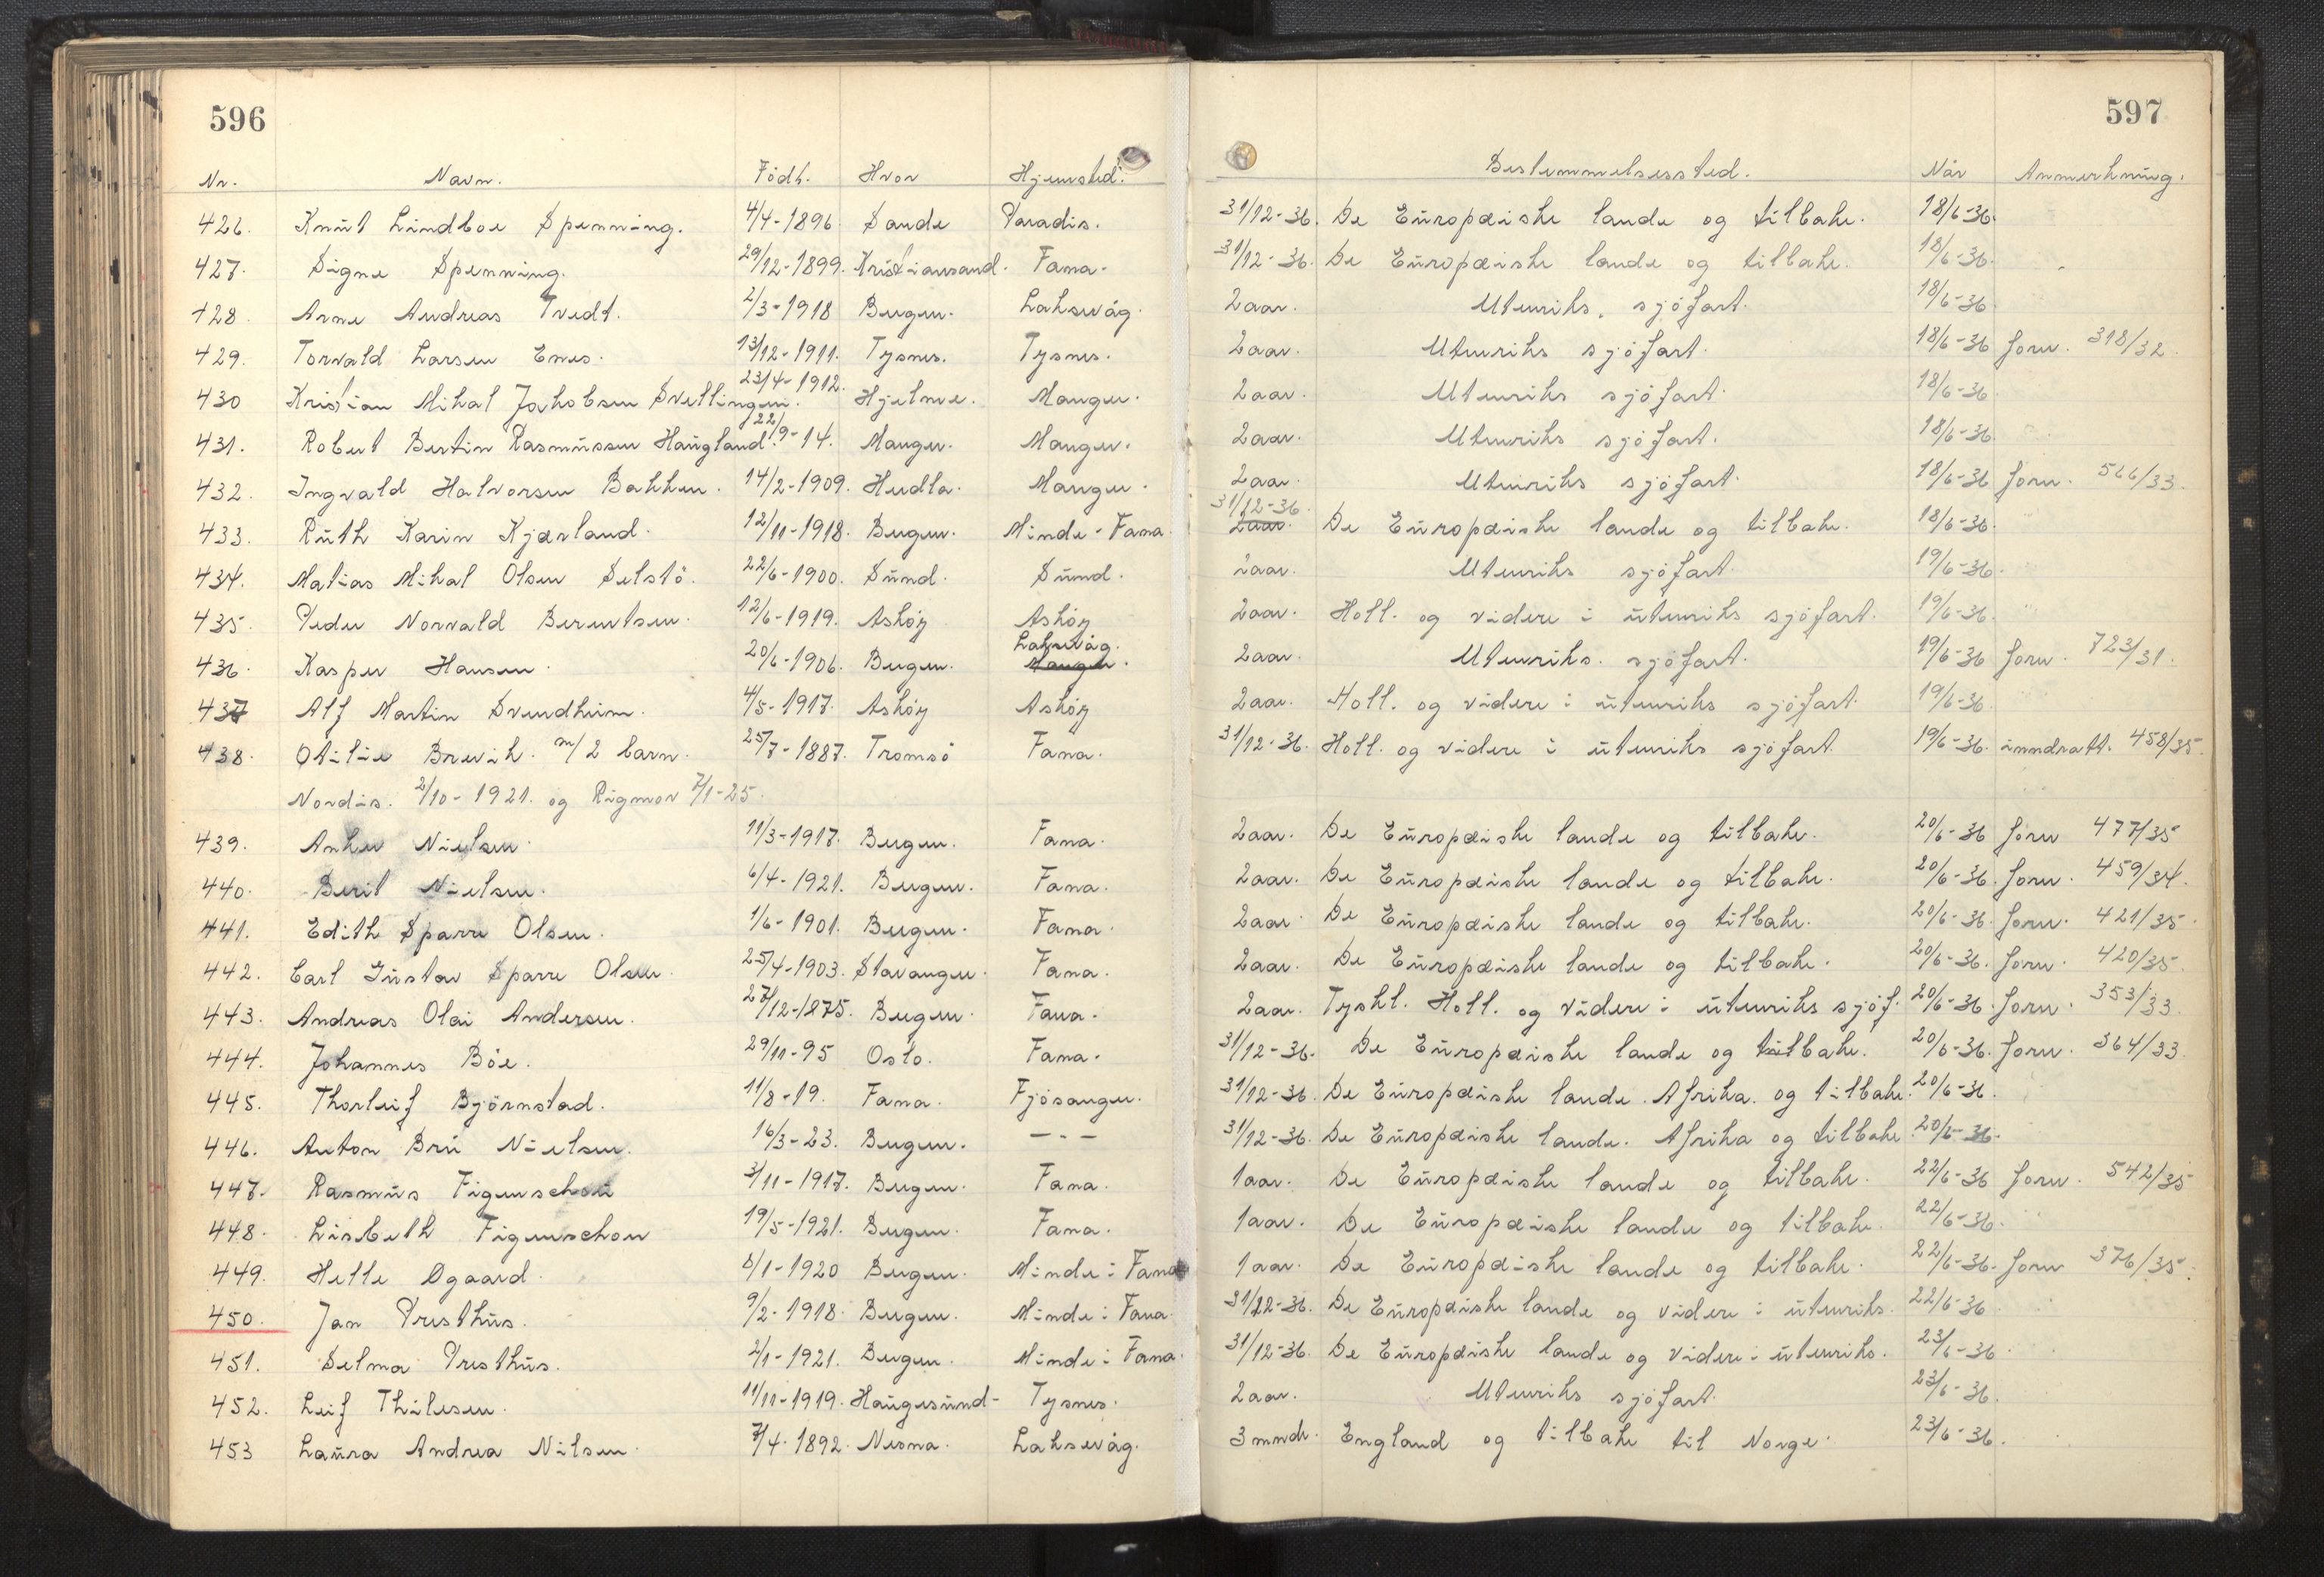 596
Nr. Navn. Födt. Hvor Hjemsted.
426. Knut Lindboe Spenning. 4/4-1896 Sande Paradis.
427. Signe Spenning. 29/12-1899. Kristiansand. Fana.
428. Arne Andreas Tvedt. 2/3-1918 Bergen. Laksevåg.
429. Torvald Larsen Enes. 13/12-1911. Tysnes. Tysnes.
430 Kristian Mikal Jakobsen Svellingen. 23/4-1912. Hjelme. Manger.
431. Robert Bertin Rasmussen Haugland. 22/9-14. Manger. Manger.
432. Ingvald Halvorsen Bakken. 14/2-1909. Herdla. Manger.
433. Ruth Karin Kjærland. 12/11-1918. Bergen. Minde-Fana.
434. Matias Mikal Olsen Selstö. 22/6-1900. Sund. Sund.
435. Peder Norvald Berentsen. 12/6-1919. Asköy Asköy
436. Kasper Hansen. 20/6-1906. Bergen. Laksevåg. Manger.
437 Alf Martin Svendheim. 4/5-1917. Asköy Asköy
438. Otilie Brevik. m/2 barn. 25/7-1887. Tromsö Fana.
Nordis. 2/10-1921. og Rigmor 7/1-25.
439. Anker Nielsen. 11/3-1917. Bergen. Fana.
440. Berit Nielsen. 6/4-1921. Bergen. Fana.
441. Edith Sparre Olsen. 1/6-1901. Bergen. Fana.
442. Carl Gustav Sparre Olsen 25/4-1903. Stavanger. Fana.
443. Andreas Olai Andersen. 27/12-1875. Bergen. Fana.
444. Johannes Böe. 29/11-95 Oslo. Fana.
445. Thorleif Björnstad. 11/8-19. Fana. Fjösanger.
446. Anton Bru Nielsen. 16/3-23. Bergen. ---
447. Rasmus Figenschou 3/11-1917. Bergen. Fana.
448. Lisbeth Figenschou 19/5-1921. Bergen. Fana.
449. Helle Ogaard. 8/1-1920 Bergen. Minde i Fana
450. Jan Presthus. 9/2-1918. Bergen. Minde i Fana.
451. Selma Presthus. 2/1-1921. Bergen. Minde i Fana.
452. Leif Thilesen. 11/11-1919. Haugesund- Tysnes.
453 Laura Andrea Nilsen. 7/4-1892. Nesna. Laksevåg.
597
Bestemmelsessted. Når Anmerkning.
31/12-36. De Europæiske lande og tilbake. 18/6-36.
31/12-36. De Europæiske lande og tilbake. 18/6-36.
2 aar. Utenriks. sjöfart. 18/6-36.
2 aar. Utenriks sjöfart. 18/6-36 forn. 318/32.
2 aar. Utenriks sjöfart. 18/6-36.
2 aar. Utenriks sjöfart. 18/6-36.
2 aar. Utenriks sjöfart. 18/6-36 forn. 566/33.
31/12-36. 2 aar. De Europæiske lande og tilbake. 18/6-36.
2 aar. Utenriks sjöfart. 19/6-36.
2 aar. Holl. og videre i utenriks sjöfart. 19/6-36.
2 aar. Utenriks. sjöfart. 19/6-36 forn. 723/31.
2 aar. Holl. og videre i utenriks sjöfart. 19/6-36.
31/12-36. Holl. og videre i utenriks sjöfart. 19/6-36. inndratt. 458/35.
2 aar. De Europæiske lande og tilbake. 20/6-36 forn 477/35
2 aar. De Europæiske lande og tilbake. 20/6-36. forn. 459/34.
2 aar. De Europæiske lande og tilbake. 20/6-36. forn. 421/35.
2 aar. De Europæiske lande og tilbake. 20/6-36. forn. 420/35.
2 aar. Tyskl. Holl. og videre i utenriks sjöf. 20/6-36. forn. 353/33.
31/12-36. De Europæiske lande og tilbake. 20/6-36. forn. 364/33.
31/12-36. De Europæiske lande. Afrika. og tilbake. 20/6-36.
31/12-36. De Europæiske lande. Afrika og tilbake. 20/6-36.
1 aar. De Europæiske lande og tilbake. 22/6-36 forn. 542/35
1 aar. De Europæiske lande og tilbake. 22/6-36.
1 aar. De Europæiske lande og tilbake. 22/6-36. forn 376/35.
31/12-36. De Europæiske lande og videre i utenriks. 22/6-36
31/12-36. De Europæiske lande og videre i utenriks. 23/6-36
2 aar. Utenriks sjöfart. 23/6-36.
3 mndr. England og tilbake til Norge. 23/6-36.